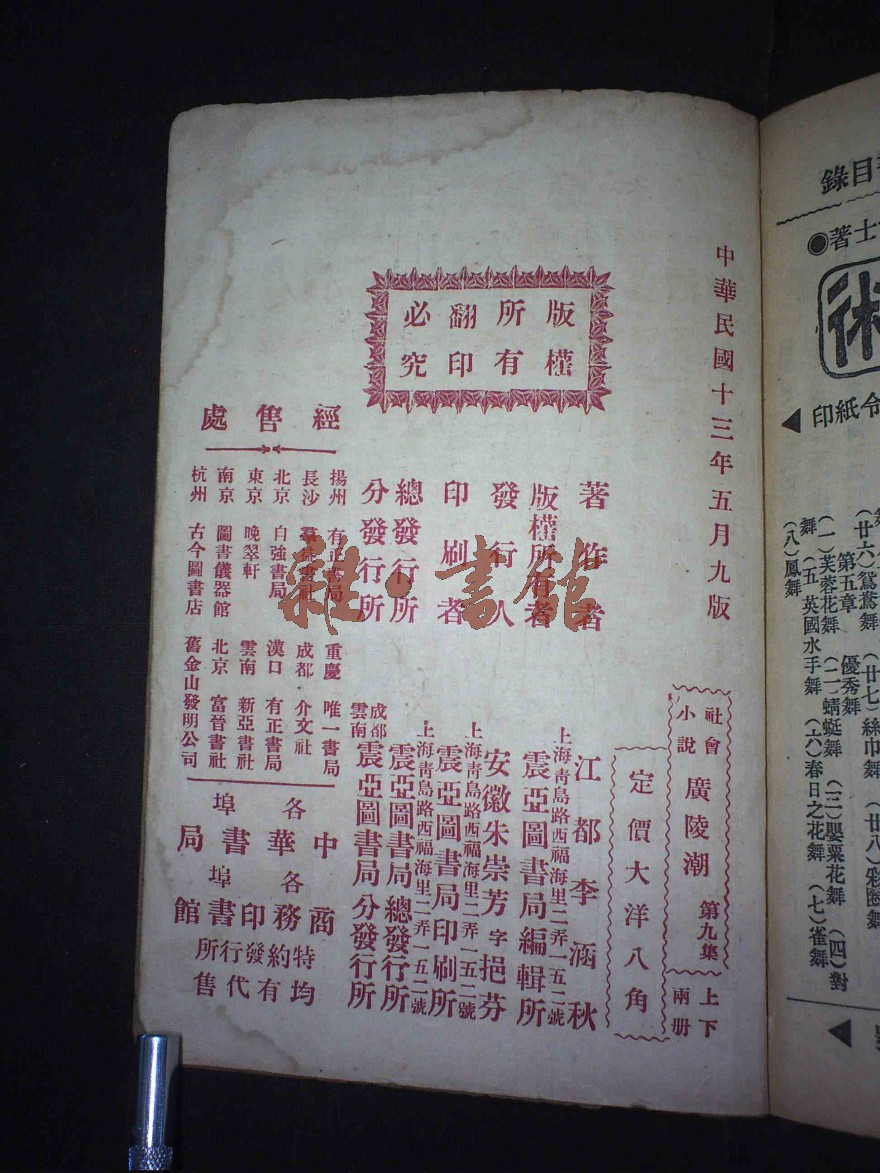 中華民國十三年五月九版
社會小說 廣陵潮 第九集 上下兩册
定價大洋八角
版權所有翻印必究
著作者 江都李涵秋
版權所有者 上海青島路西福海里二弄一五二號 震亞圖書局編輯所
發行人 安徽朱崇芳字挹芬
印刷者 上海青島路西福海里二弄一五二號 震亞圖書局印刷所
總發行所 上海青島路西福海里二弄一五二號 震亞圖書局總發行所
分發行所 成都雲南 震亞圖書局分發行所
經售處
揚州 有正書局 重慶 唯一書局
長沙 羣益書社 成都 介文社
北京 自強書局 漢口 有正書局
東京 晚翠軒 雲南 新亞書社
南京 圖書儀器館 北京 富晉書社
杭州 古今圖書店 舊金山發明公司
各埠中華書局
各埠商務印書館
特約發行所
均有代售
雜·書館
目錄
士著
術
令紙印
(廿六)鴛鴦舞 (廿七)絲巾舞 (廿八)彩圈舞
第五章 優秀舞
(一)芙蓉花舞 (二)蜻蜓舞 (三)罌粟花舞 (四)對
舞 (五)英國水手舞 (六)春日之花舞 (七)雀舞
(八)鳳舞